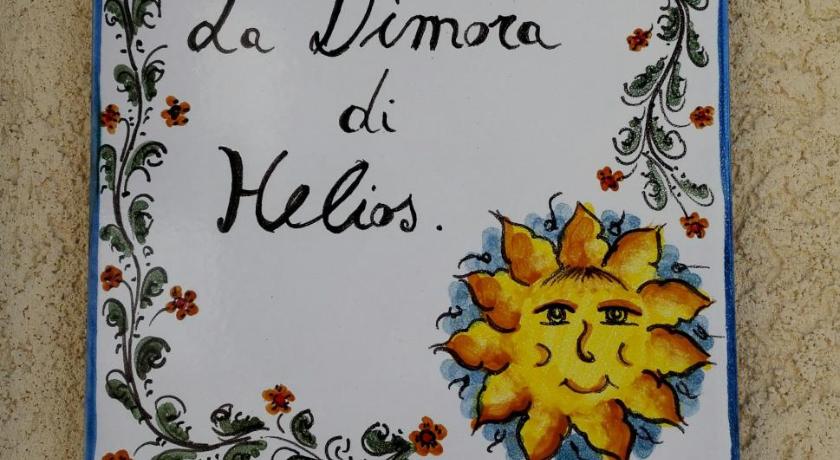 La Dimora
di
Helios.